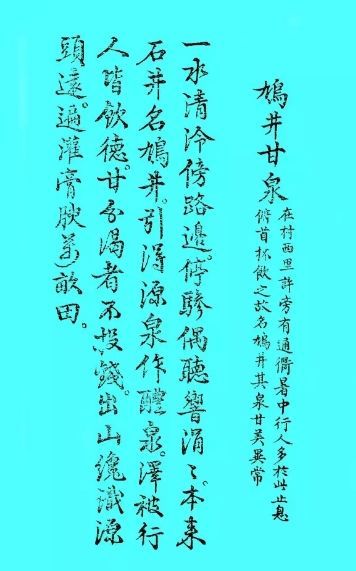 鳩井甘泉
在村西里許旁有通衢暑中行人多於此止息
俯首杯飲之故名鳩井其泉甘美異常
一水清泠傍路邊。停驂偶聽響涓〻。本来
石井名鳩井。引得源泉作醴泉。澤被行
人皆飲德。甘分渴者不投錢。出山纔識源
頭遠。遍灌膏腴萬畝田。